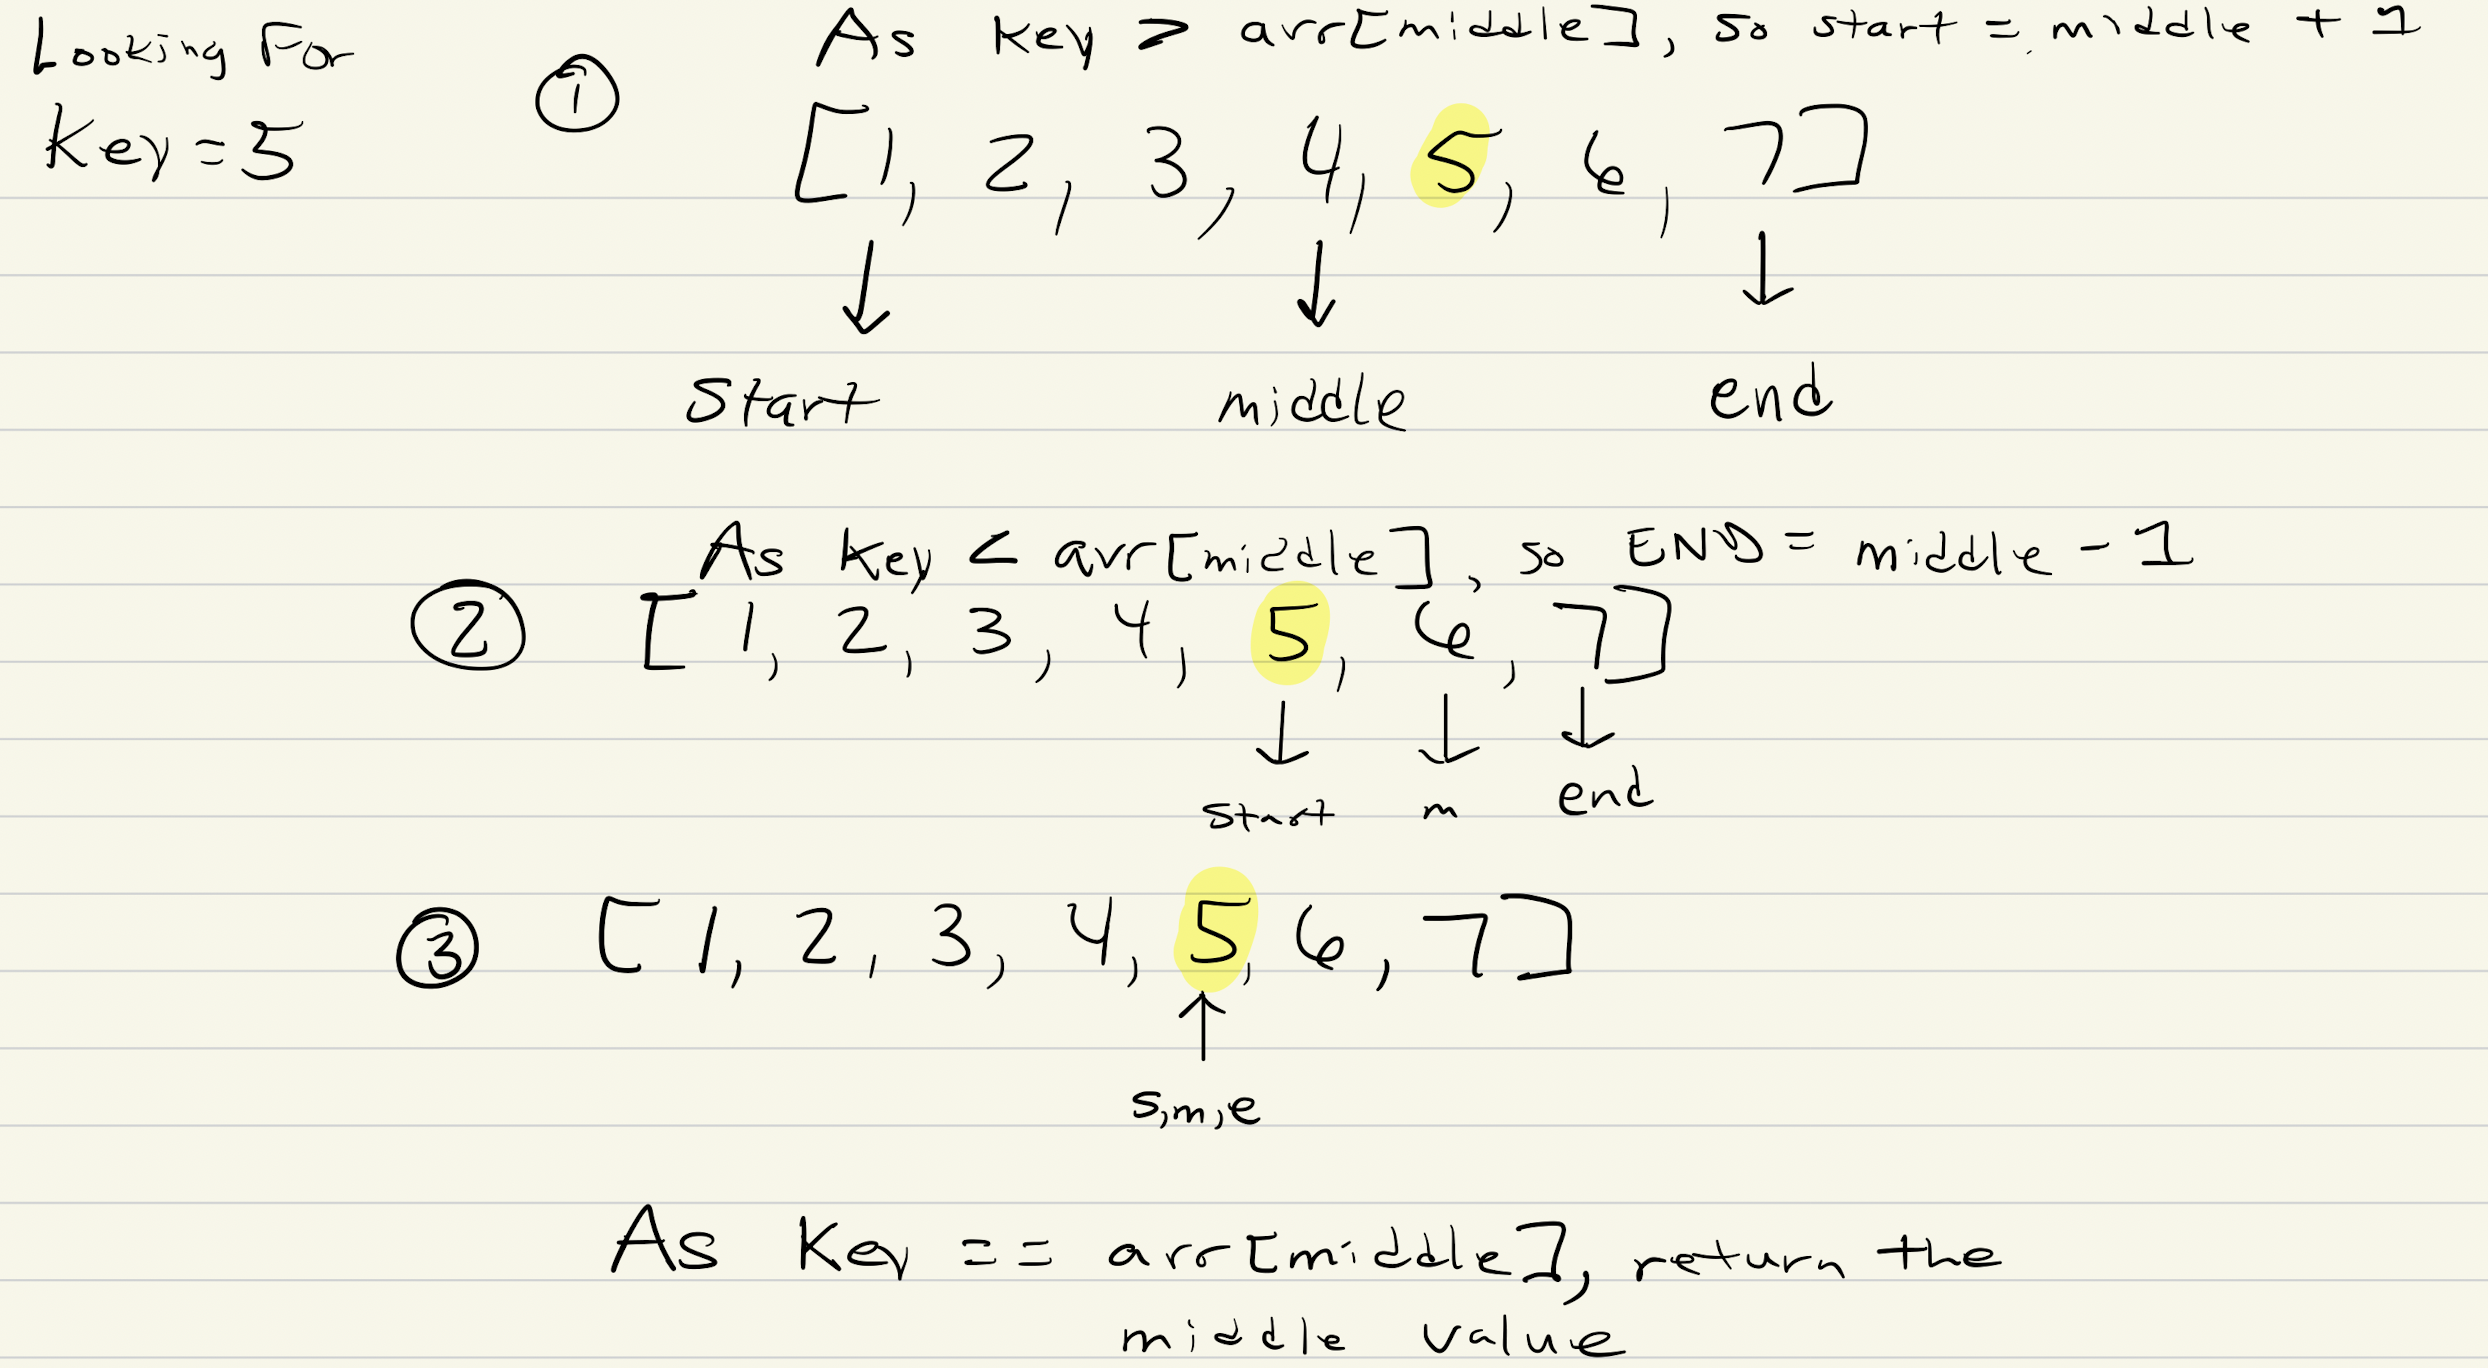 Looking For
Key = 5
①
As key > arr[middle], so start = middle + 1
[1, 2, 3, 4, 5, 6, 7]
Start middle end
As key < arr[middle], so END = middle - 1
② [1, 2, 3, 4, 5, 6, 7]
start m end
③ [1, 2, 3, 4, 5, 6, 7]
s,m,e
As Key == arr[middle], return the
middle value